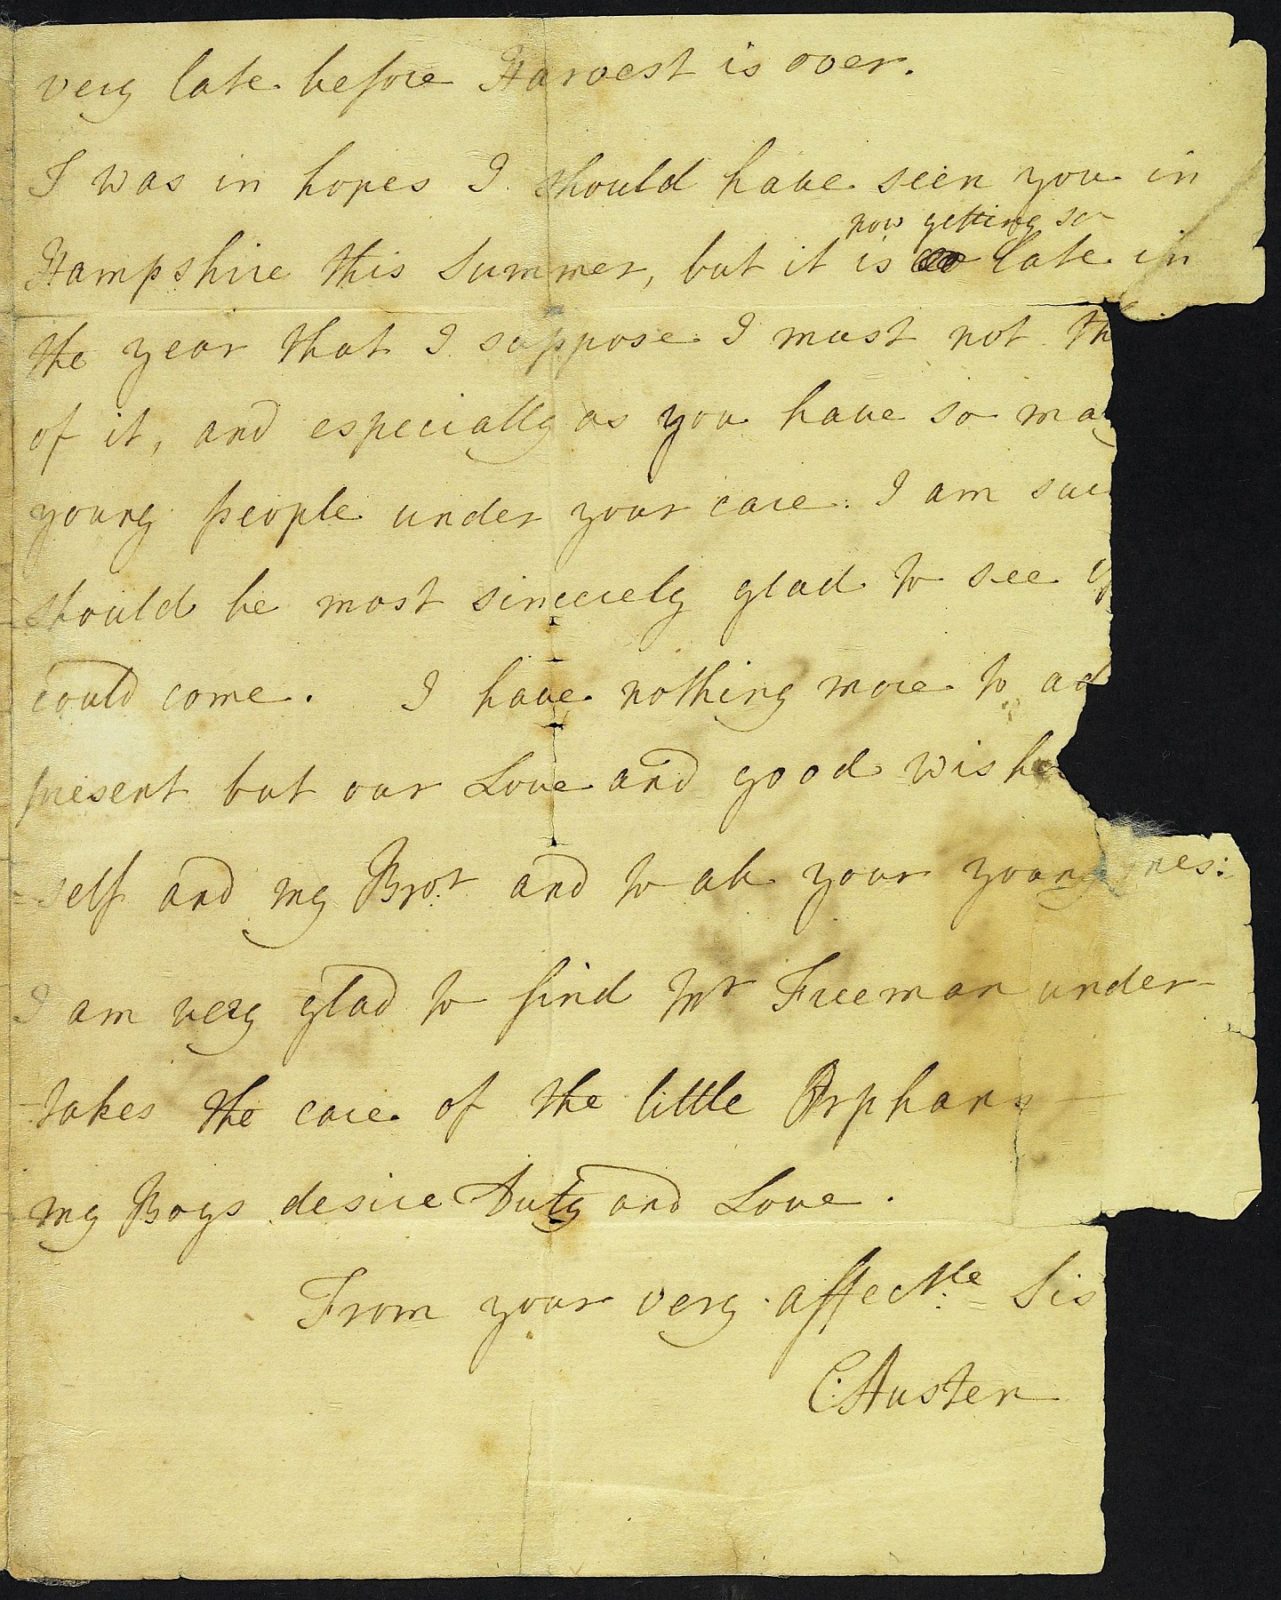 very late before Harvest is over.
I was in hopes I should have seen you in
now getting so
Hampshire this Summer, but it is late in
the year that I suppose I must not th
of it, and especially as you have so ma
young people under your care. I am su
should be most sincerely glad to see y
could come. I have nothing more to ad
present but our Love and good wishe
self and my Bror. and to all your young ones:
I am very glad to find Mr Freeman under-
-takes the care of the little Orphans—
my Boys desire Duty and Love.
From your very affectte. Sis
C: Austen